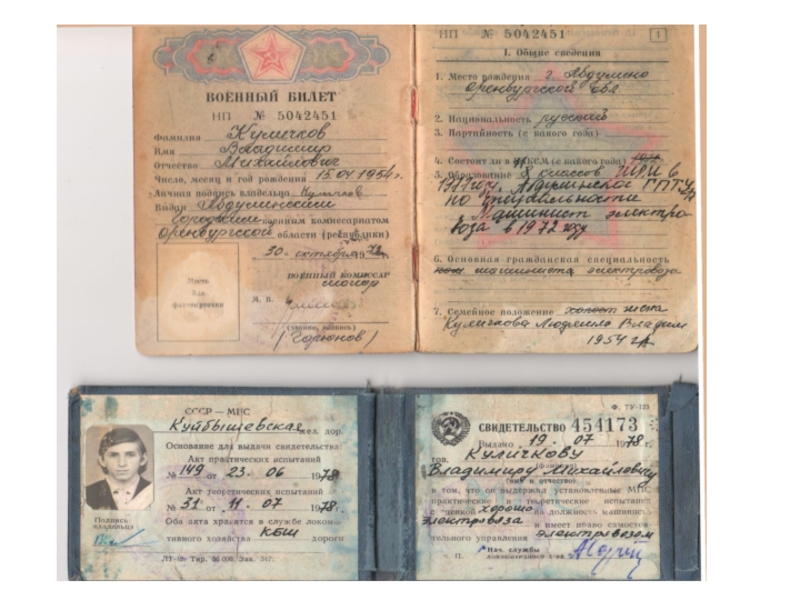 ВОЕННЫЙ БИЛЕТ
НП № 5042451
Фамилия Куличков
Имя Владимир
Отчество Михайлович
Число, месяц и год рождения 15.04.1954г
Личная подпись владельца
Выдан Абдулинским
городским военным комиссариатом
Оренбургской области (республики)
30 октября 1972г.
ВОЕННЫЙ КОМИССАР
майор
М. П.
(звание, подпись)
(Горюнов)
Место
для
фотокарточки
НП № 5042451
1
I. Общие сведения
1. Место рождения г. Абдулино
Оренбургской обл
2. Национальность русский
3. Партийность (с какого года)
4. Состоял ли в ВЛКСМ (с какого года)
5. Образование 8 классов
Абдулинское ГПТУ
по специальности
Машинист электро-
воза в 1972 году
6. Основная гражданская специальность
машиниста электровоза
7. Семейное положение холост жена
Куличкова Людмила Владим
1954 г.
СССР — МПС
Куйбышевская жел. дор.
Основание для выдачи свидетельства:
Акт практических испытаний
№ 149 от 23. 06 1978
Акт теоретических испытаний
№ 31 от 11. 07 1978 г.
Оба акта хранятся в службе локомо-
тивного хозяйства КБШ дороги
Подпись
владельца
Ф. ТУ-123
СВИДЕТЕЛЬСТВО 454173
Выдано 19. 07 1978 г.
тов. КУЛИЧКОВУ
(фамилия)
Владимиру Михайловичу
(имя и отчество)
в том, что он выдержал установленные МПС
практические и теоретические испытания
с оценкой хорошо на должность машиниста
электровоза и имеет право самостоя-
тельного управления электровозом
Нач. службы